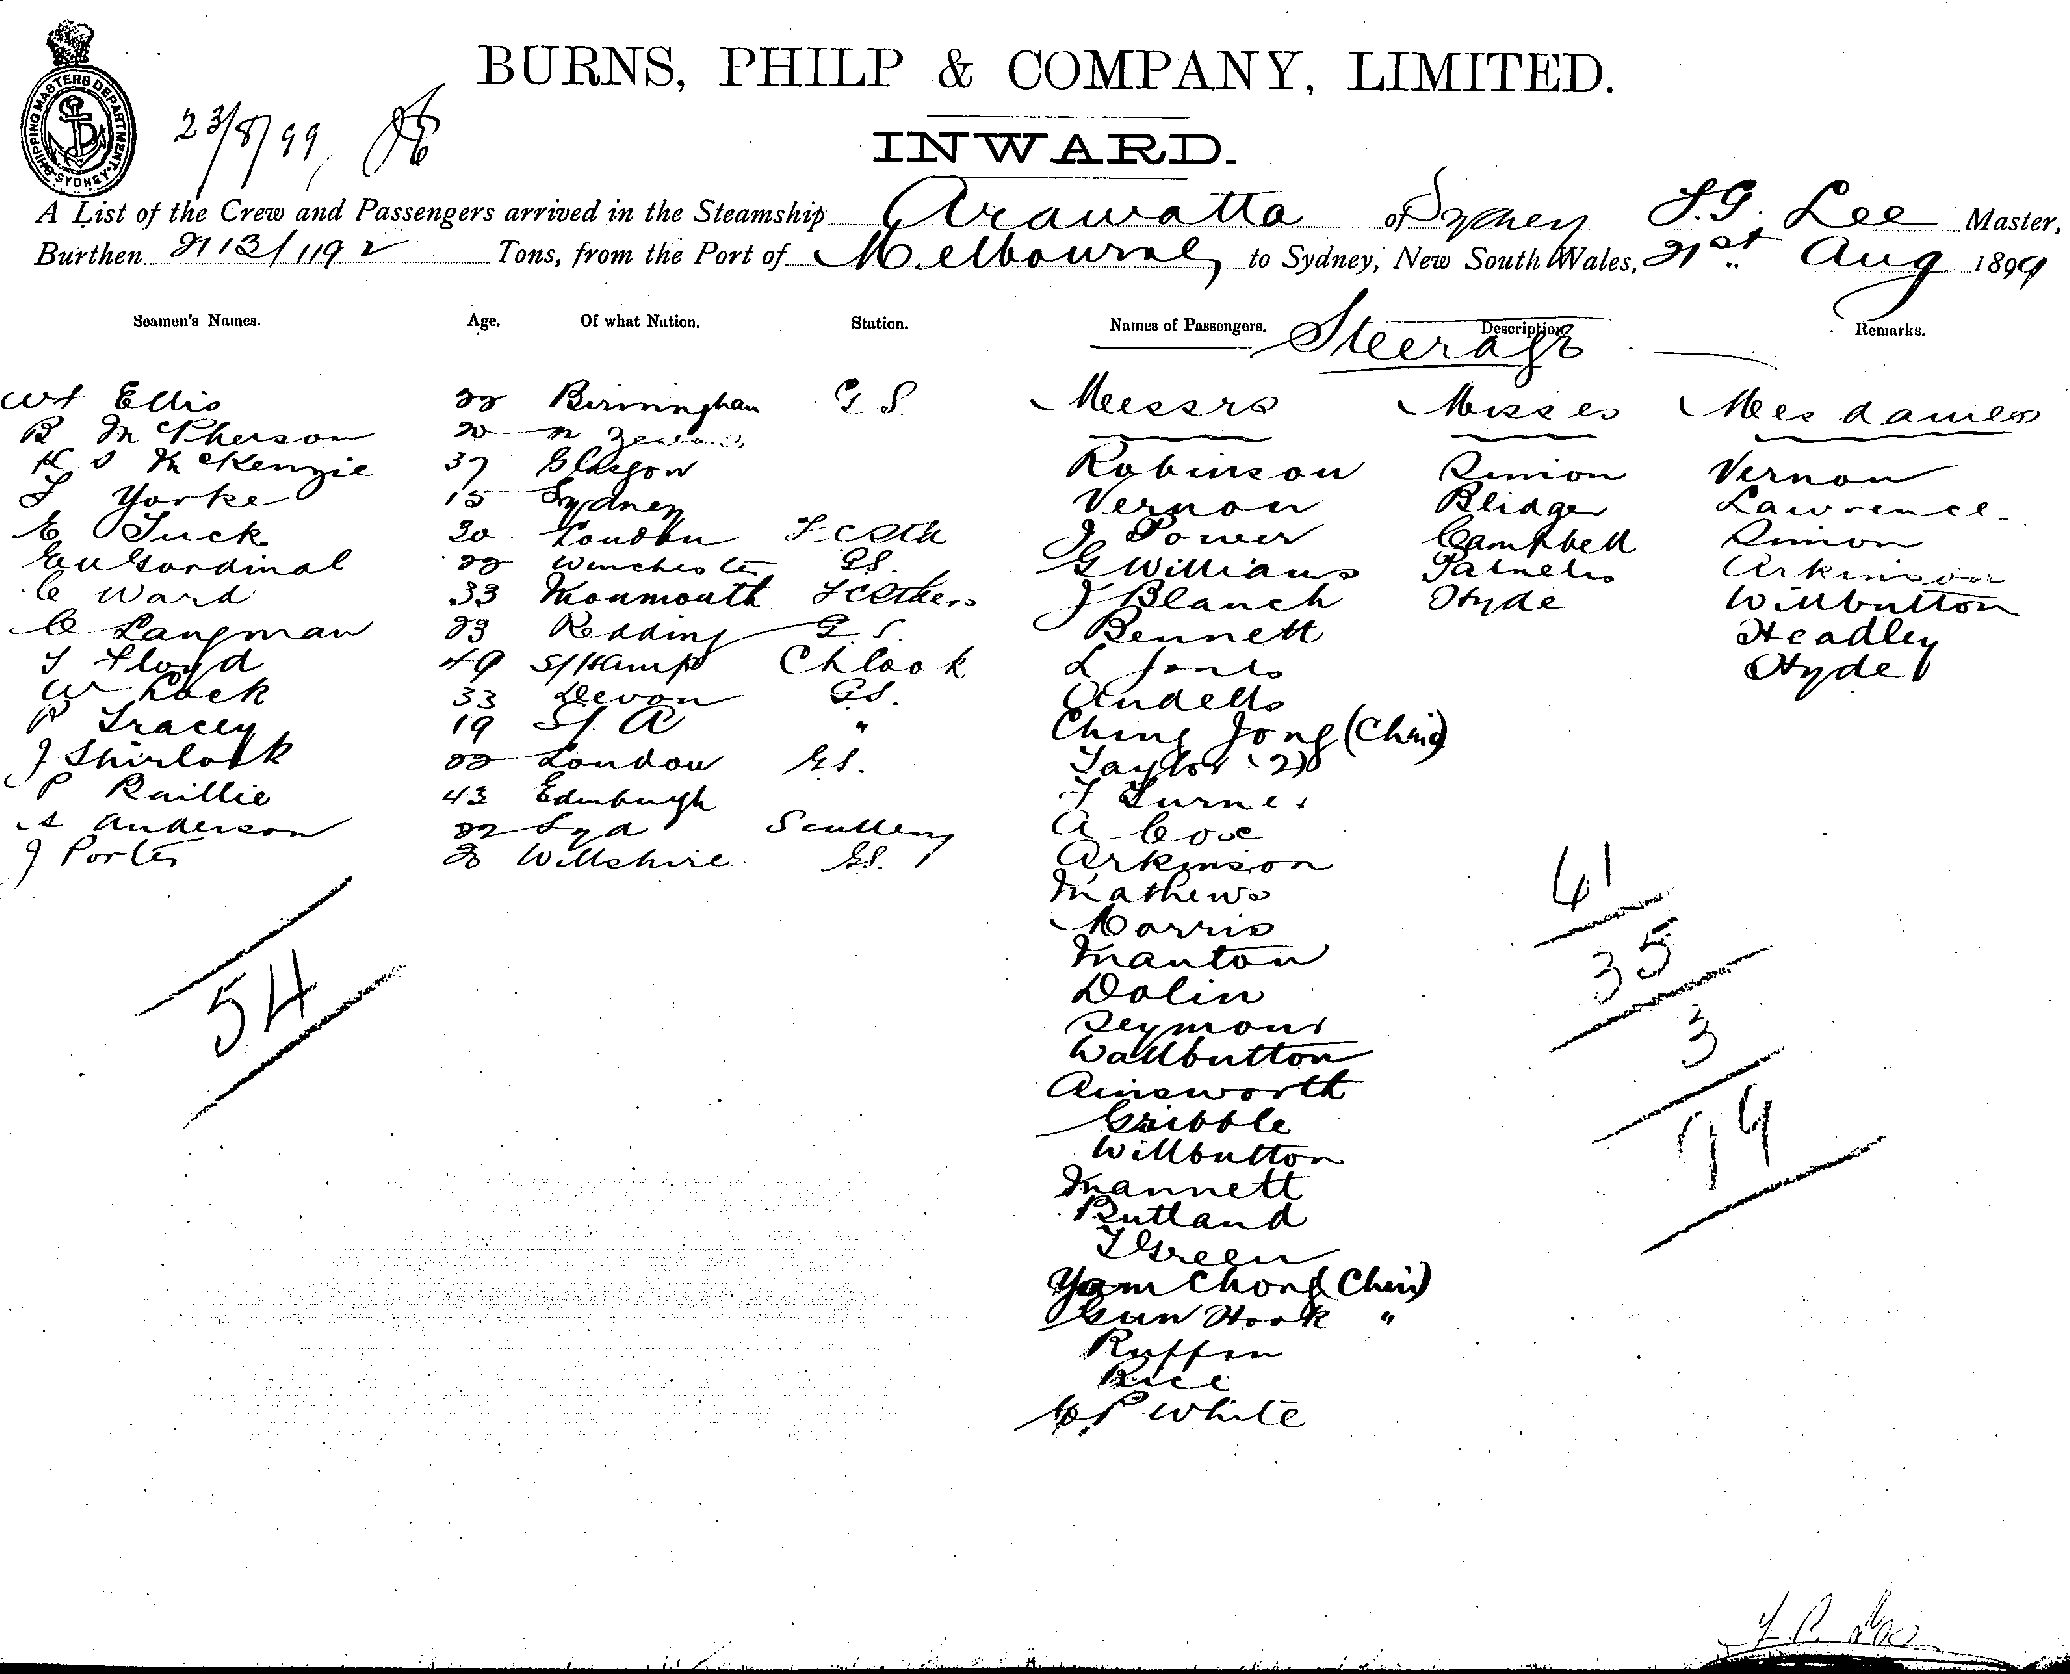 SHIPPING MASTERS DEPARTMENT SYDNEY
23/8/99
BURNS, PHILP & COMPANY, LIMITED.
INWARD.
A List of the Crew and Passengers arrived in the Steamship Arawatta of Sydney Lee Master,
Burthen 2113/1192 Tons, from the Port of Melbourne, to Sydney, New South Wales, 21st Aug 1899
Seamen's Names. Age. Of what Nation. Station. Names of Passengers. Description. Remarks.
Steerage
Ellis 22 Birmingham G S. Messrs Misses Mesdames
B McPherson 20
McKenzie 37 Glasgow Robinson Simon Vernon
Yorke 15 Sydney Vernon Blidger Lawrence
E Tuck 30 London J Power Campbell Simon
22 Winchester GS. G Williams Arkinson
C Ward 33 Monmouth J Blanch Hyde Willbutton
C Langman 23 Redding G.S. Bennett Headley
Floyd 49 S/Hamp Ch Cook L Jones Hyde
W Lock 33 Devon GS.
P Tracey 19 S/ A " Ching Jong (Chin)
J Shirlock 22 London G.S. Taylor (2)
P Raillie 43 Edinburgh Turner
Anderson 22 Syd Scullery A Coxe
J Porter 20 Willshire GS. Arkinson
Mathews
Morris
Manton
Dolin
Seymour
Wallbutton
Ainsworth
Gribble
Willbutton
Mannett
Rutland
Green
Yam Chong (Chin)
Gun Hook "
Ruffin
Rice
C. P White
54
61
35
3